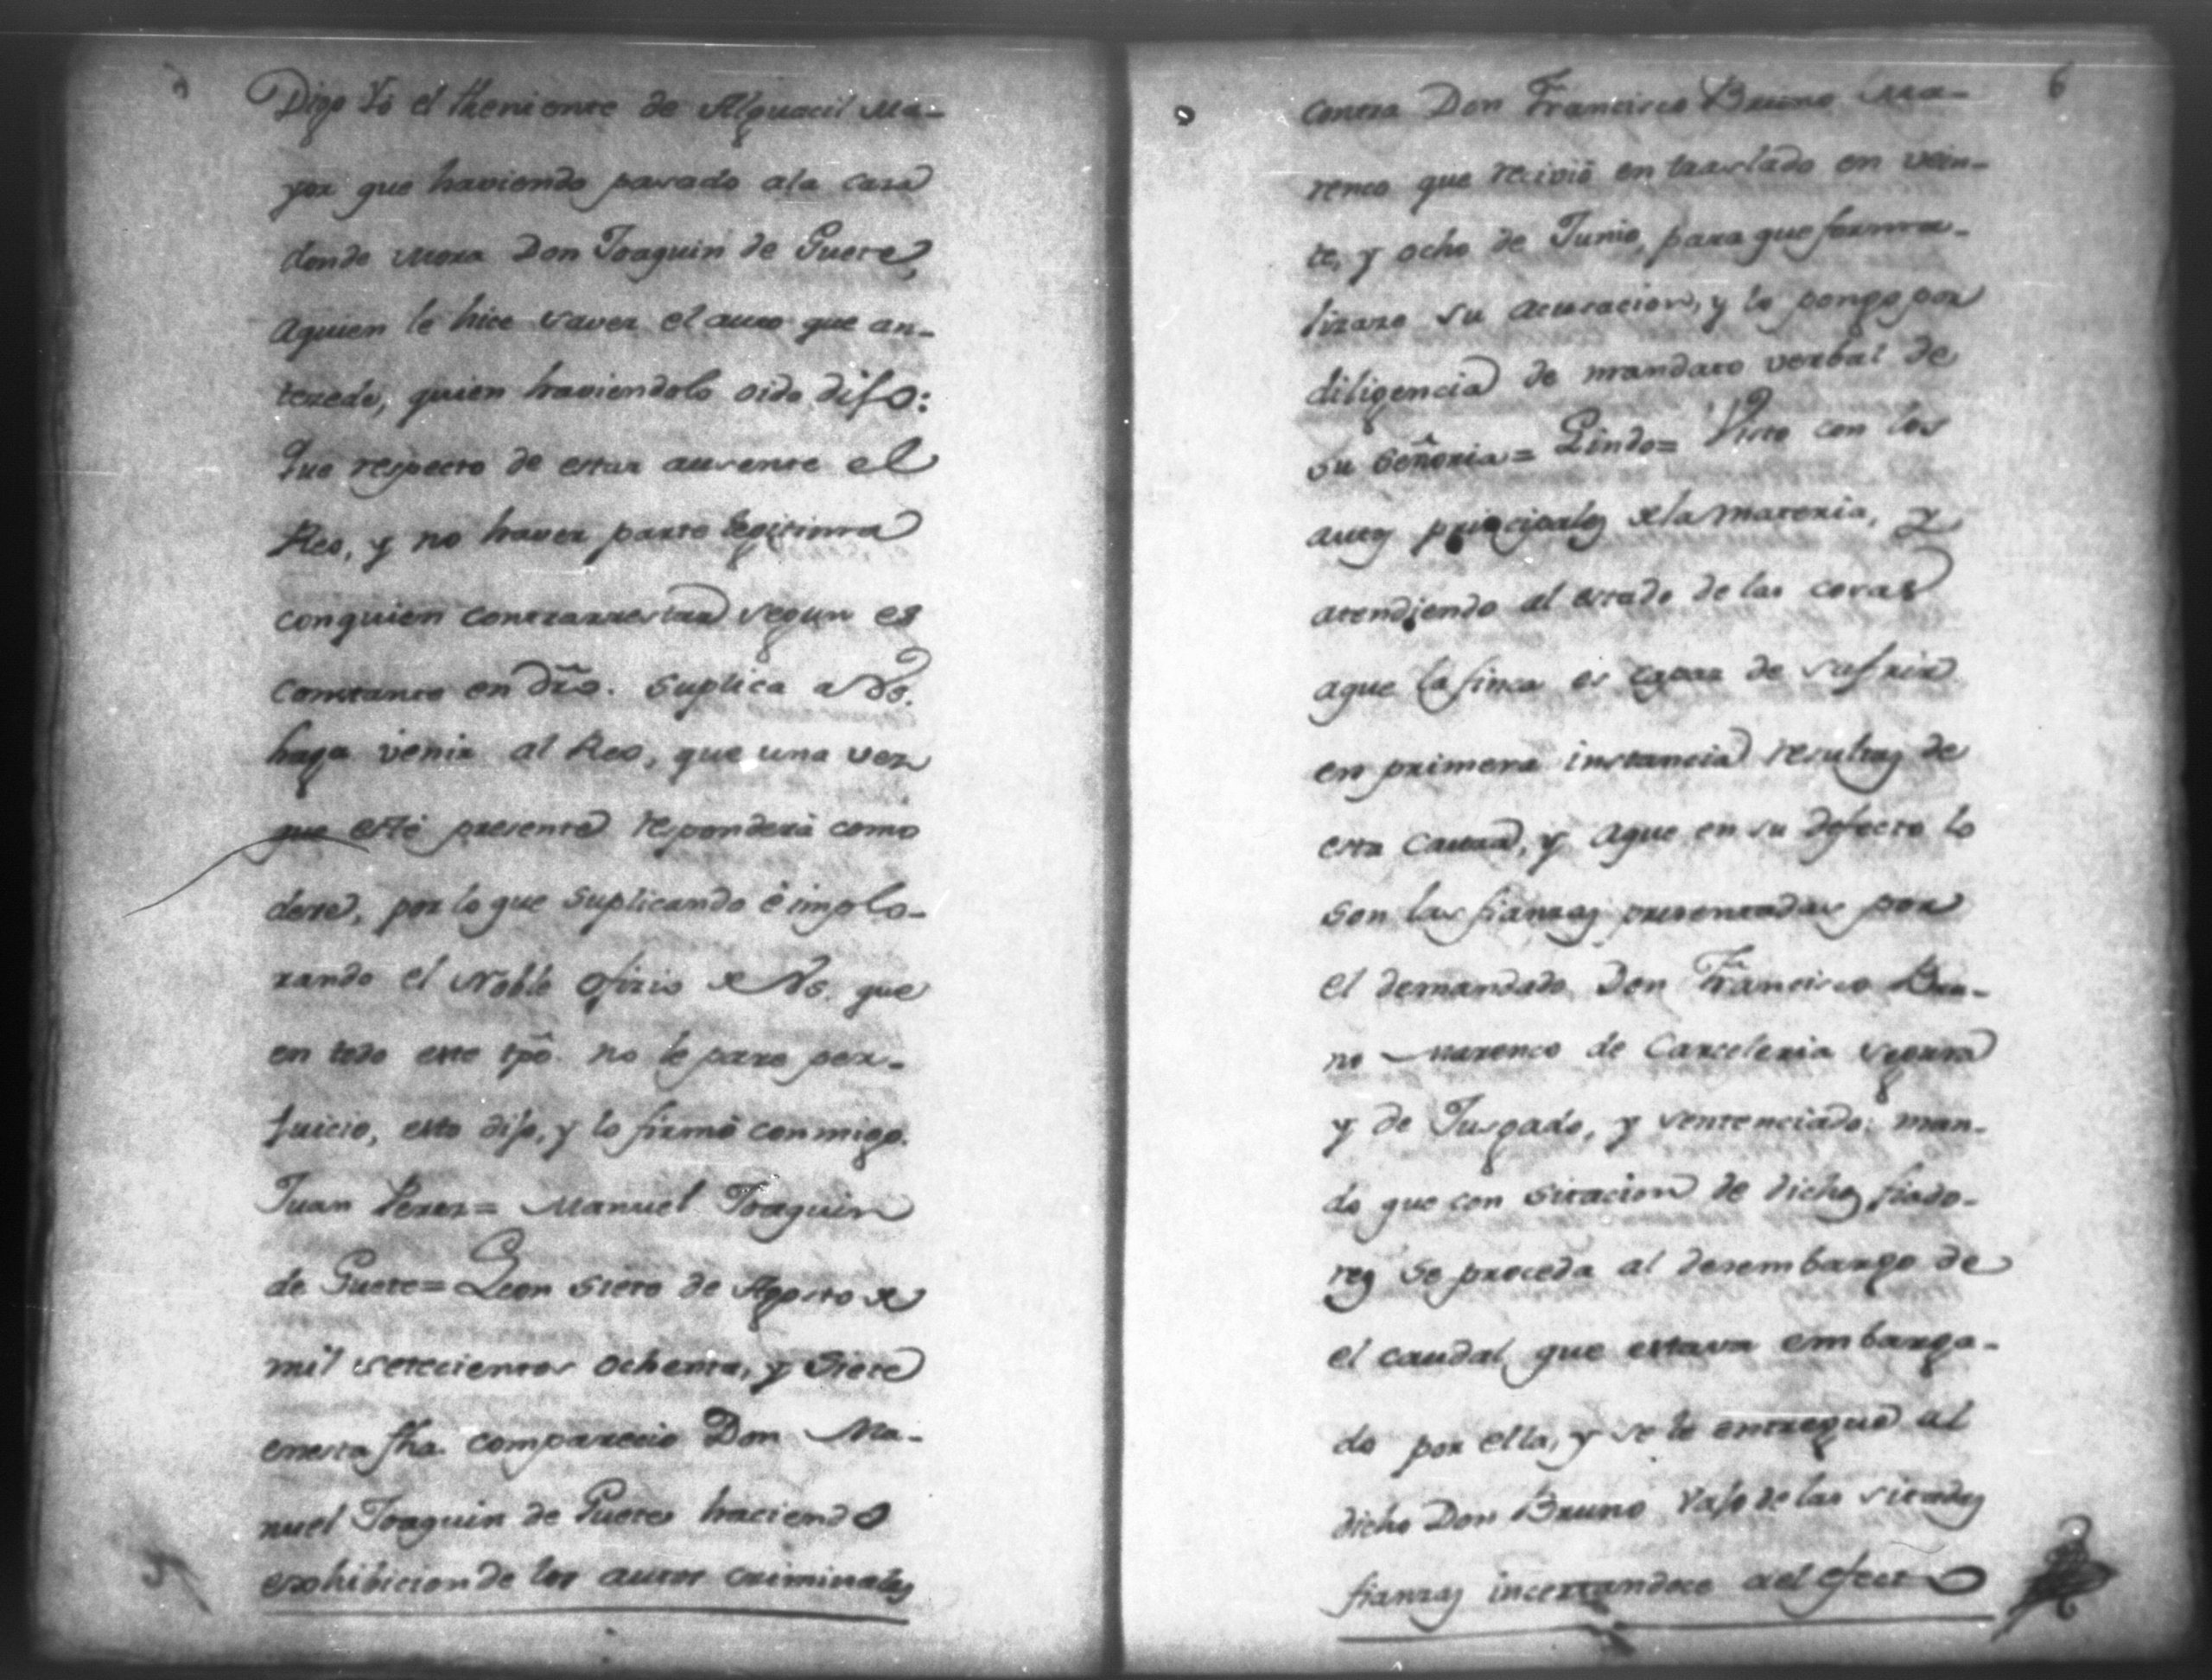 Digo Yó el theniente de Alguacil Ma-
yor que haviendo pasado ala casa
donde mora Don Joaquin de Guere,
aquien le hice saver el auto que an-
tecede, quien haviendolo oido difo:
Que respecto de estar ausente el
Reo, y no haver parte legitima
conquien contrarrestar segun es
constante en dr̃o. Suplica a Vs.
haga venir al Reo, que una vez
que esté presente responderá como
deve, por lo que suplicando é implo-
rando el Noble ofizio de Vs. que
en todo este tpõ. no le pare per-
juicio, esto dijo, y lo firmó conmigo.
Juan Perez= Manuel Joaquin
de Guere= Leon Siete de Agosto de
mil setecientos ochenta, y Siete
enesta fha. comparecio Don Ma-
nuel Joaquin de Guere haciendo
exhibicion de los autos criminales
6
contra Don Francisco Bruno Ma-
renco que recivió en traslado en vein-
te, y ocho de Junio, para que forma-
lizare su acusacion, y lo pongo por
diligencia de mandato verbal de
su Señoria= Lindo= Visto con los
autos principales de la materia, y
atendiendo al estado de las cosas
aque la finca es capaz de sufrir
en primera instancia resultas de
esta causa, y aque en su defecto lo
son las fianzas presentadas por
el demandado Don Francisco Bru-
no Marenco de Carceleria segura
y de Jusgado, y sentenciado: man-
do que con sitacion de dichos fiado-
res se proceda al desembargo de
el caudal que estava embarga-
do por ella, y se le entregue al
dicho Don Bruno vajo de las sitadas
fianzas incertandoce al efecto